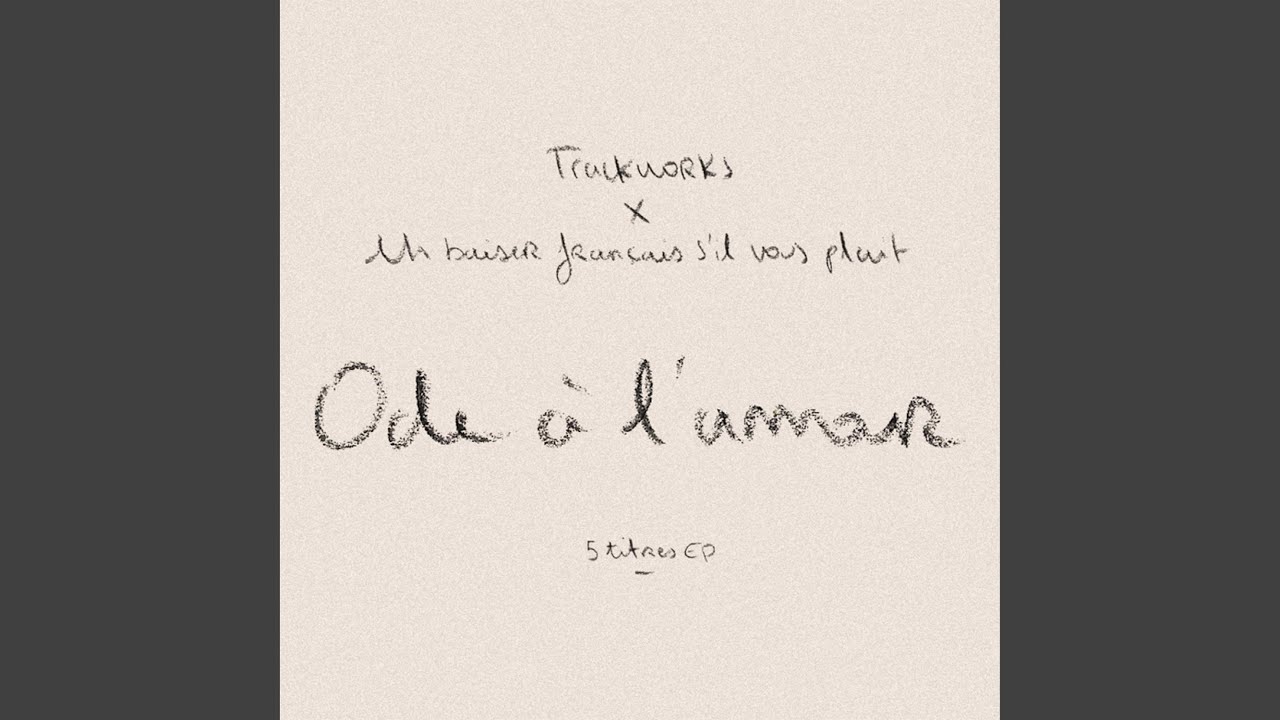 Trackworks
X
Un baiser français s'il vous plait
Ode à l'amar
5 titres EP